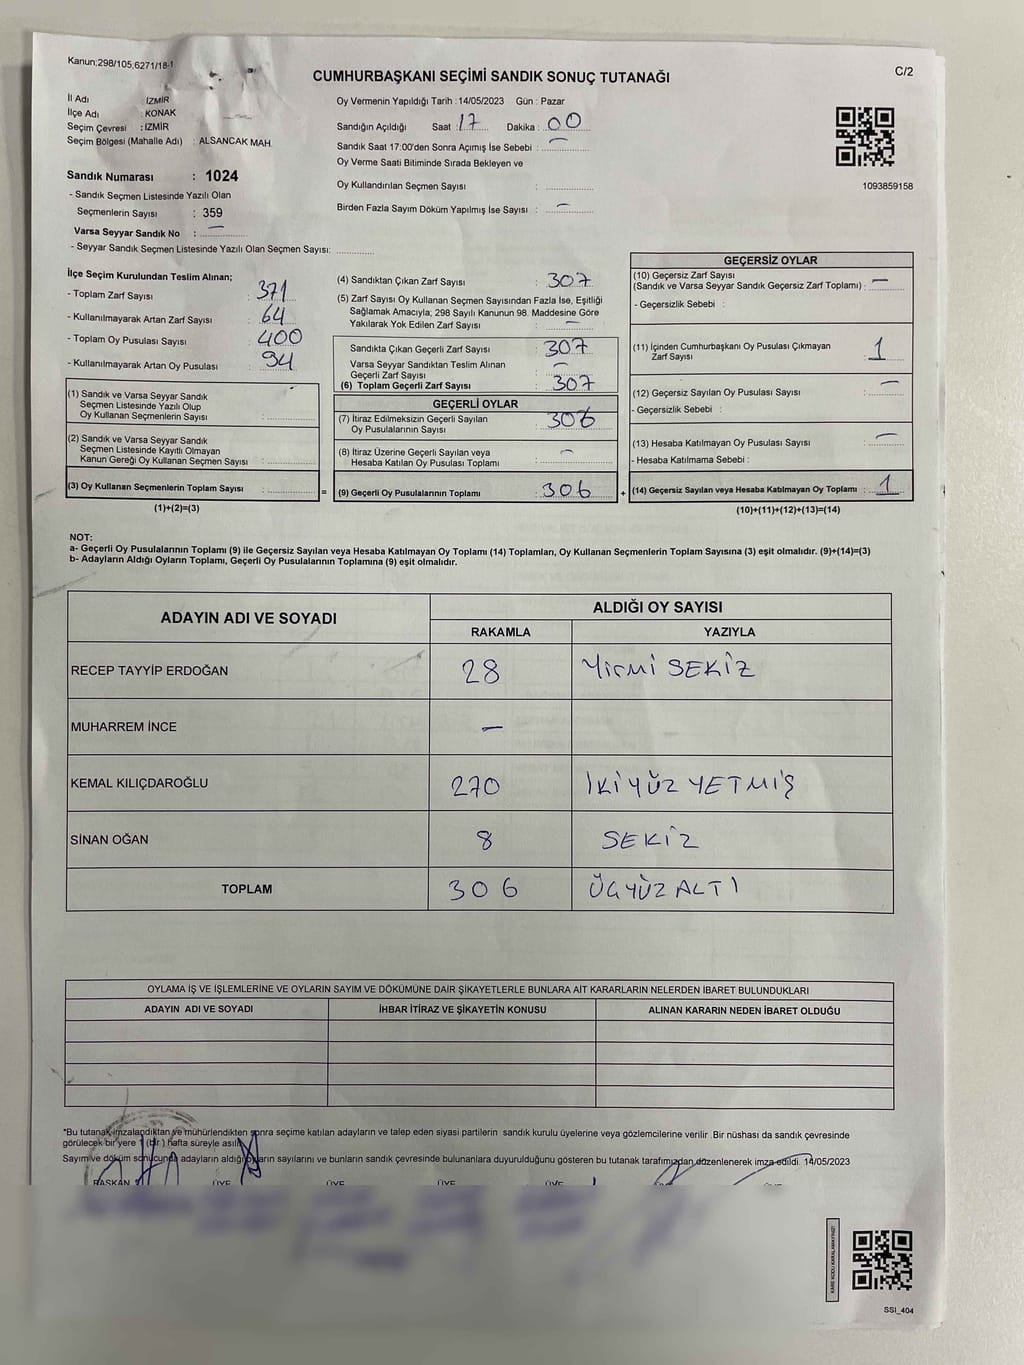 Kanun:298/105,6271/18-1
CUMHURBAŞKANI SEÇİMİ SANDIK SONUÇ TUTANAĞI
C/2
İl Adı : İZMİR
İlçe Adı : KONAK
Seçim Çevresi : İZMİR
Seçim Bölgesi (Mahalle Adı) : ALSANCAK MAH.
Oy Vermenin Yapıldığı Tarih :14/05/2023 Gün : Pazar
Sandığın Açıldığı Saat : 17 Dakika : 00
Sandık Saat 17:00'den Sonra Açımış İse Sebebi : —
Oy Verme Saati Bitiminde Sırada Bekleyen ve
Oy Kullandırılan Seçmen Sayısı :
Birden Fazla Sayım Döküm Yapılmış İse Sayısı : —
1093859158
Sandık Numarası : 1024
- Sandık Seçmen Listesinde Yazılı Olan
Seçmenlerin Sayısı : 359
Varsa Seyyar Sandık No : —
- Seyyar Sandık Seçmen Listesinde Yazılı Olan Seçmen Sayısı:
İlçe Seçim Kurulundan Teslim Alınan;
- Toplam Zarf Sayısı : 371
- Kullanılmayarak Artan Zarf Sayısı : 64
- Toplam Oy Pusulası Sayısı : 400
- Kullanılmayarak Artan Oy Pusulası : 94
(1) Sandık ve Varsa Seyyar Sandık
Seçmen Listesinde Yazılı Olup
Oy Kullanan Seçmenlerin Sayısı :
(2) Sandık ve Varsa Seyyar Sandık
Seçmen Listesinde Kayıtlı Olmayan
Kanun Gereği Oy Kullanan Seçmen Sayısı :
(3) Oy Kullanan Seçmenlerin Toplam Sayısı : =
(1)+(2)=(3)
(4) Sandıktan Çıkan Zarf Sayısı : 307
(5) Zarf Sayısı Oy Kullanan Seçmen Sayısından Fazla İse, Eşitliği
Sağlamak Amacıyla; 298 Sayılı Kanunun 98. Maddesine Göre
Yakılarak Yok Edilen Zarf Sayısı : —
Sandıkta Çıkan Geçerli Zarf Sayısı : 307
Varsa Seyyar Sandıktan Teslim Alınan
Geçerli Zarf Sayısı : —
(6) Toplam Geçerli Zarf Sayısı : 307
GEÇERLİ OYLAR
(7) İtiraz Edilmeksizin Geçerli Sayılan
Oy Pusulalarının Sayısı : 306
(8) İtiraz Üzerine Geçerli Sayılan veya
Hesaba Katılan Oy Pusulası Toplamı : —
(9) Geçerli Oy Pusulalarının Toplamı : 306 +
GEÇERSİZ OYLAR
(10) Geçersiz Zarf Sayısı
(Sandık ve Varsa Seyyar Sandık Geçersiz Zarf Toplamı) : —
- Geçersizlik Sebebi :
(11) İçinden Cumhurbaşkanı Oy Pusulası Çıkmayan
Zarf Sayısı : 1
(12) Geçersiz Sayılan Oy Pusulası Sayısı : —
- Geçersizlik Sebebi :
(13) Hesaba Katılmayan Oy Pusulası Sayısı : —
- Hesaba Katılmama Sebebi :
(14) Geçersiz Sayılan veya Hesaba Katılmayan Oy Toplamı : 1
(10)+(11)+(12)+(13)=(14)
NOT:
a- Geçerli Oy Pusulalarının Toplamı (9) ile Geçersiz Sayılan veya Hesaba Katılmayan Oy Toplamı (14) Toplamları, Oy Kullanan Seçmenlerin Toplam Sayısına (3) eşit olmalıdır. (9)+(14)=(3)
b- Adayların Aldığı Oyların Toplamı, Geçerli Oy Pusulalarının Toplamına (9) eşit olmalıdır.
ADAYIN ADI VE SOYADI ALDIĞI OY SAYISI
RAKAMLA YAZIYLA
RECEP TAYYİP ERDOĞAN 28 YİRMİ SEKİZ
MUHARREM İNCE —
KEMAL KILIÇDAROĞLU 270 İKİYÜZ YETMİŞ
SİNAN OĞAN 8 SEKİZ
TOPLAM 306 ÜÇYÜZ ALTI
OYLAMA İŞ VE İŞLEMLERİNE VE OYLARIN SAYIM VE DÖKÜMÜNE DAİR ŞİKAYETLERLE BUNLARA AİT KARARLARIN NELERDEN İBARET BULUNDUKLARI
ADAYIN ADI VE SOYADI İHBAR İTİRAZ VE ŞİKAYETİN KONUSU ALINAN KARARIN NEDEN İBARET OLDUĞU
*Bu tutanak imzalandıktan ve mühürlendikten sonra seçime katılan adayların ve talep eden siyasi partilerin sandık kurulu üyelerine veya gözlemcilerine verilir. Bir nüshası da sandık çevresinde
görülecek bir yere 1 (bir) hafta süreyle asılır.
Sayım ve döküm sonucunda adayların aldığı oyların sayılarını ve bunların sandık çevresinde bulunanlara duyurulduğunu gösteren bu tutanak tarafımızdan düzenlenerek imza edildi. 14/05/2023
BAŞKAN ÜYE ÜYE ÜYE ÜYE
KARE KODU KARALAMAYINIZ!
SSI_404